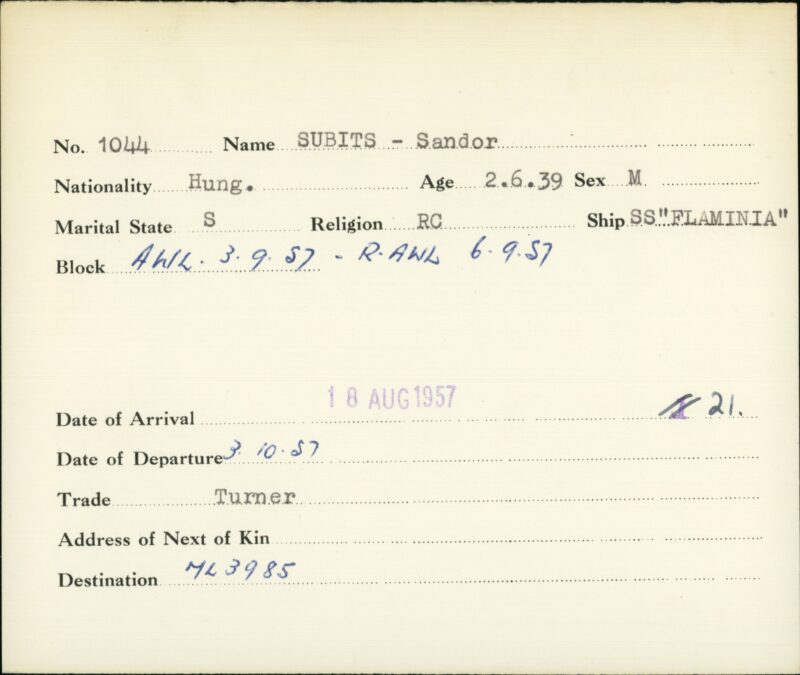 No. 1044 Name SUBITS - Sandor
Nationality Hung. Age 2.6.39 Sex M
Marital State S Religion RC Ship SS"FLAMINIA"
Block AWL. 3.9.57 - R.AWL 6.9.57
18 AUG 1957
Date of Arrival 21.
Date of Departure 3.10.57
Trade Turner
Address of Next of Kin
Destination ML3985